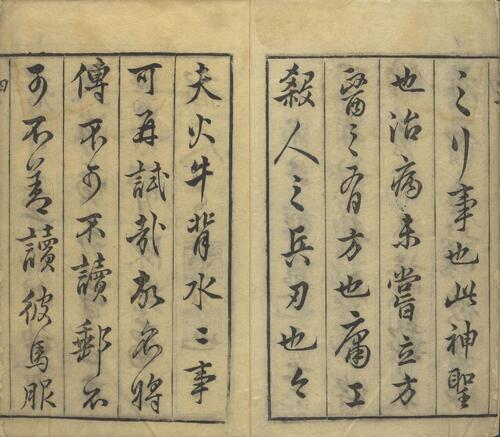 之行事也此神聖
也治病未嘗立方
醫之有方也庸工
殺人之兵刃也々
夫火牛背水二事
可再試哉故名將
傳不可不讀郵不
可不善讀彼馬服
四